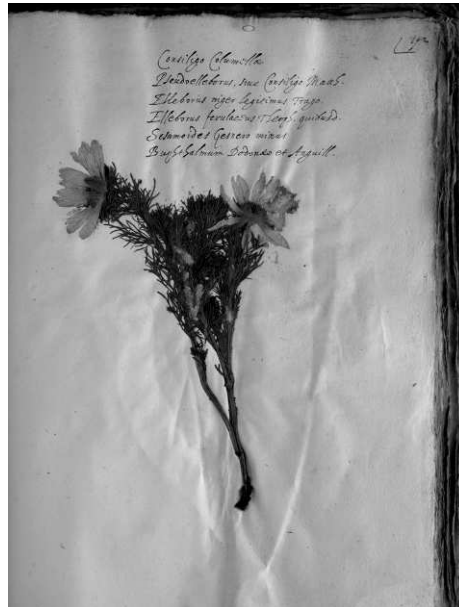 Consiligo Columellae
Pseudoelleborus, sive Consiligo Matth.
Elleborus niger legitimus Trago.
Elleborus ferulaceus Theop. quibusd.
Sesamoides Gesnero minus
Buphthalmum Dodonaeo et Anguill.